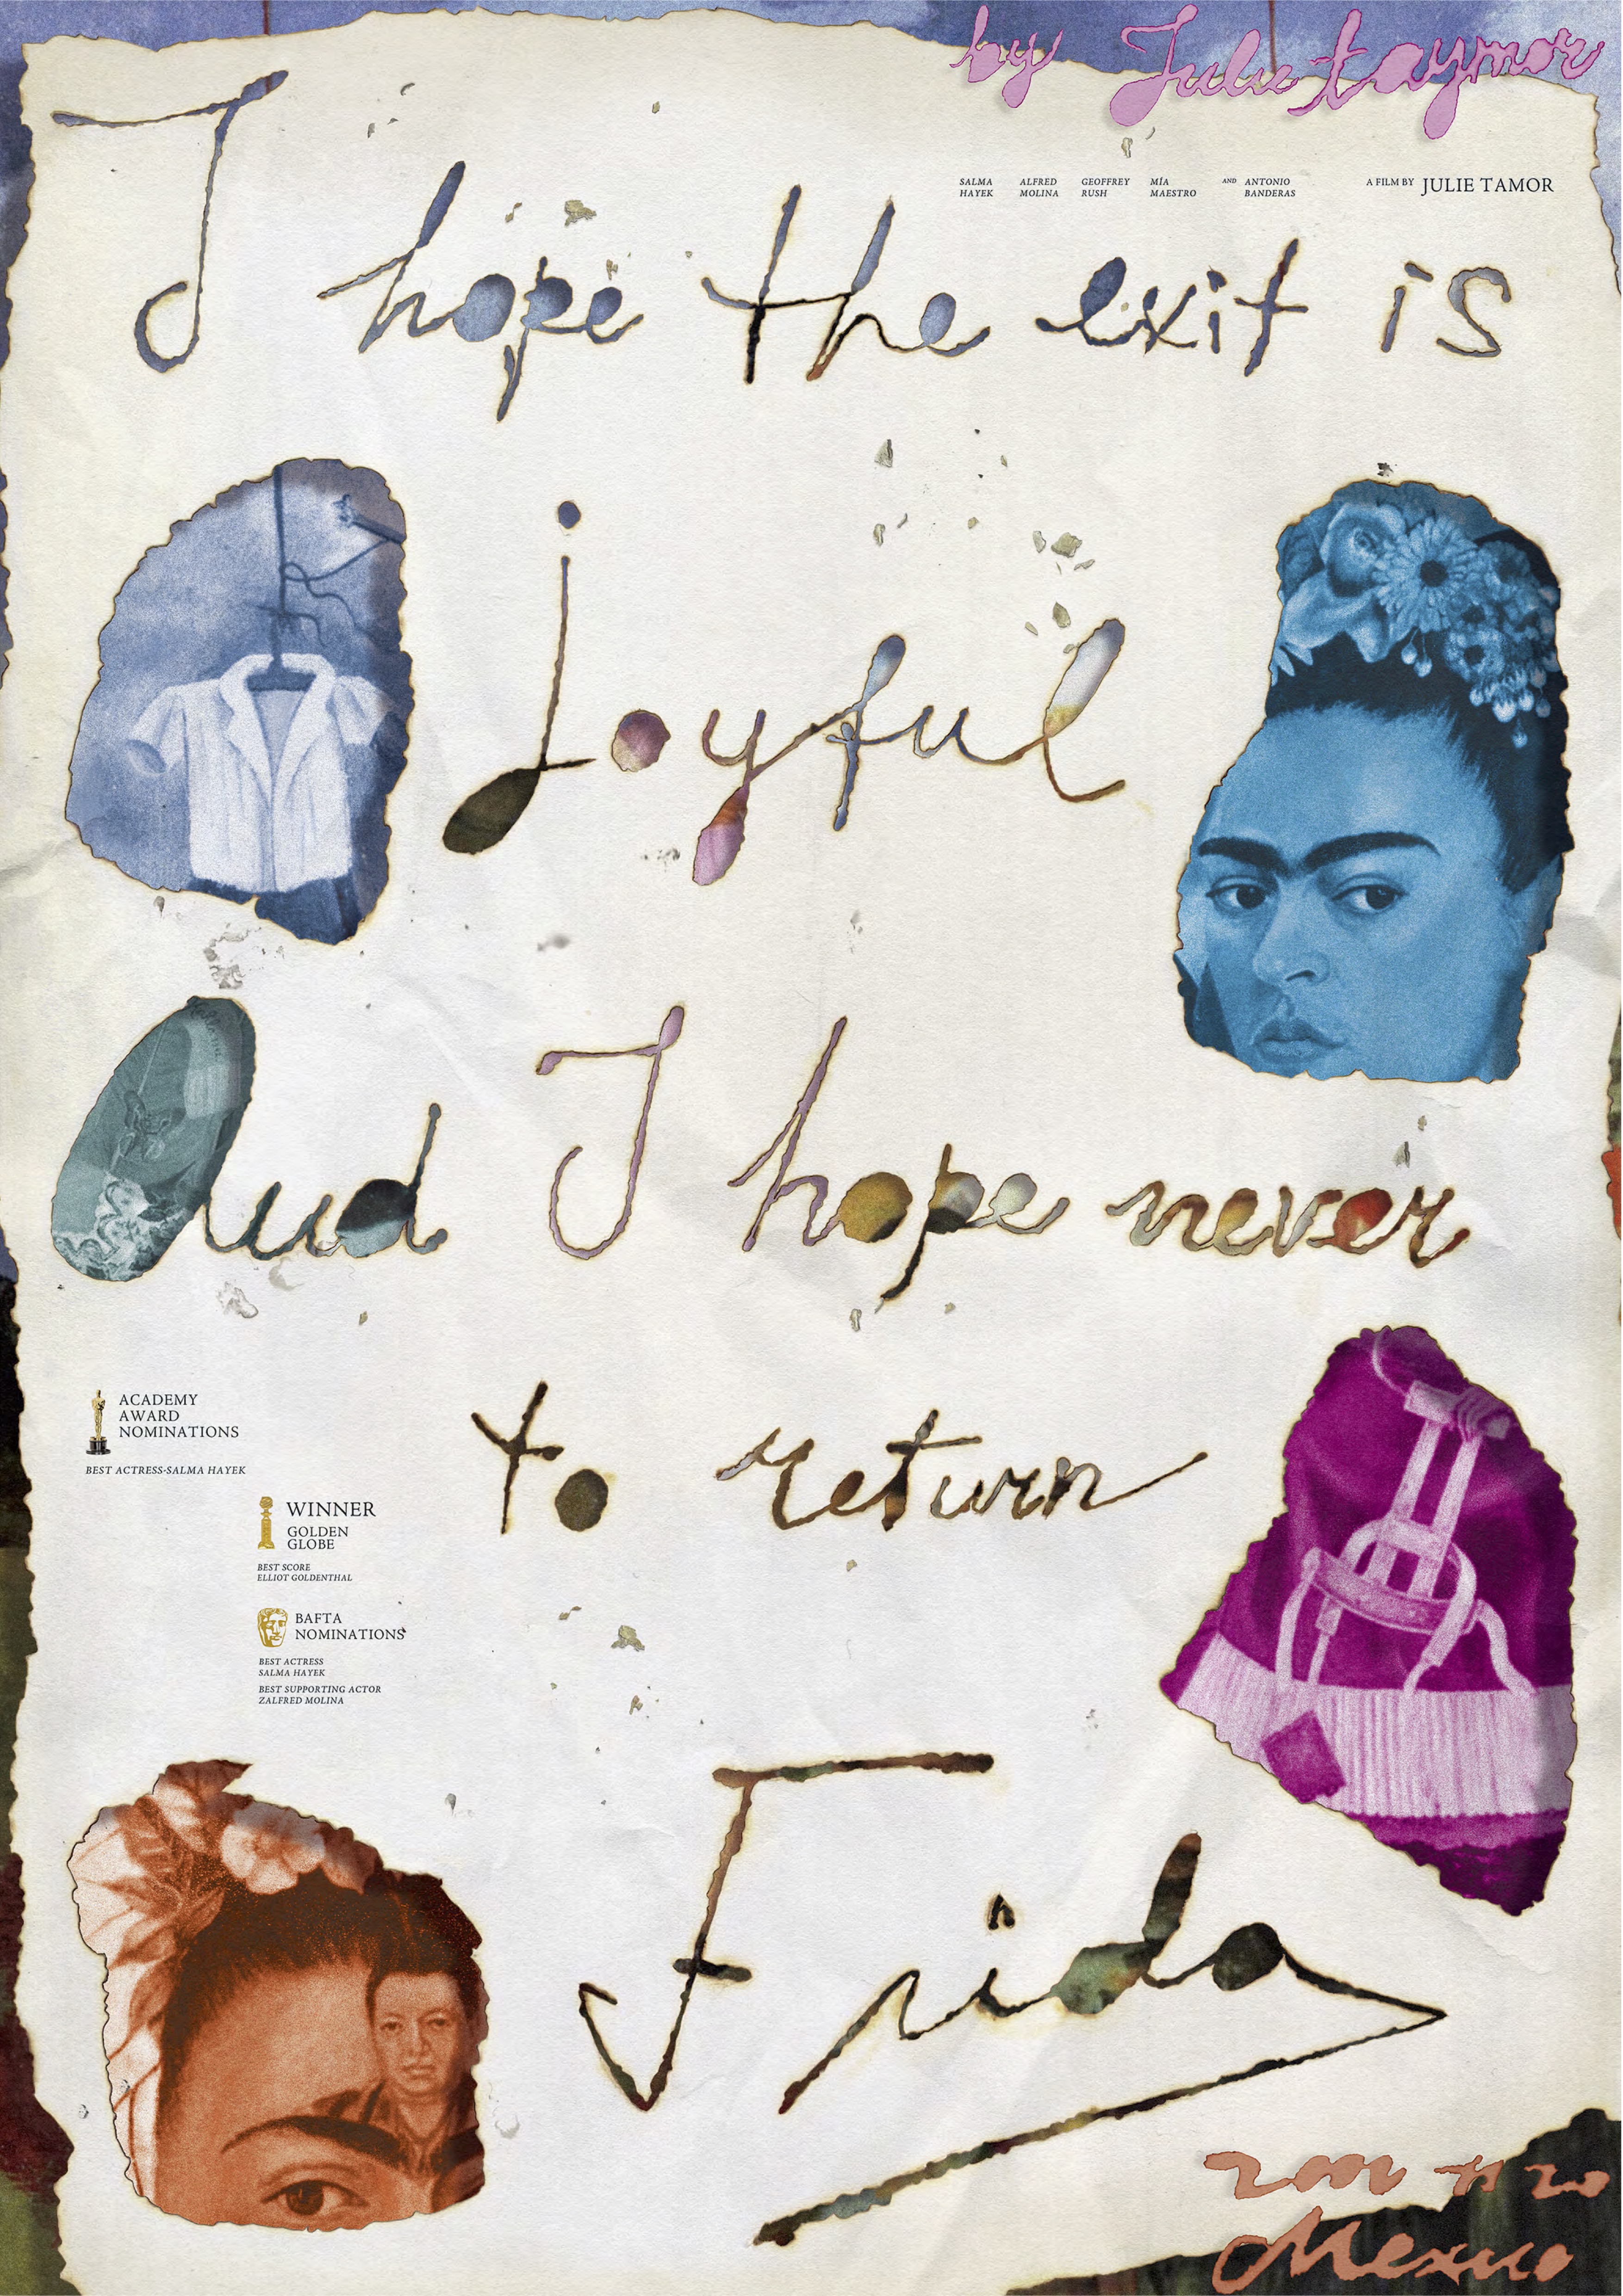 by Julie taymor
SALMA HAYEK
ALFRED MOLINA
GEOFFREY RUSH
MÍA MAESTRO
AND ANTONIO BANDERAS
A FILM BY JULIE TAMOR
I hope the exit is
joyful
And I hope never
to return
ACADEMY
AWARD
NOMINATIONS
BEST ACTRESS-SALMA HAYEK
WINNER
GOLDEN
GLOBE
BEST SCORE
ELLIOT GOLDENTHAL
BAFTA
NOMINATIONS
BEST ACTRESS
SALMA HAYEK
BEST SUPPORTING ACTOR
ZALFRED MOLINA
Frida
Mexico